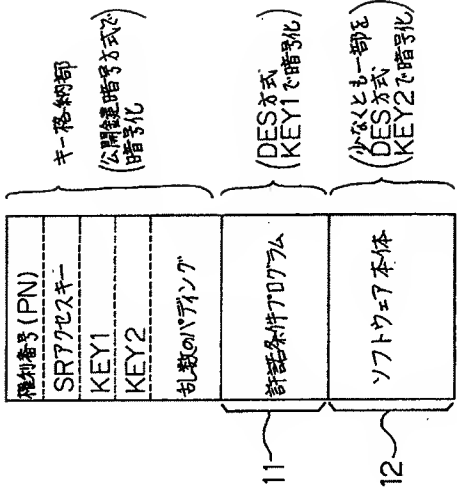 権利番号(PN)
SRアクセスキー
KEY1
KEY2
乱数のパディング
許諾条件プログラム
ソフトウェア本体
キー格納部
(公開鍵暗号方式で
暗号化
(DES方式
KEY1で暗号化)
(少なくとも一部を
DES方式
KEY2で暗号化)
11
12